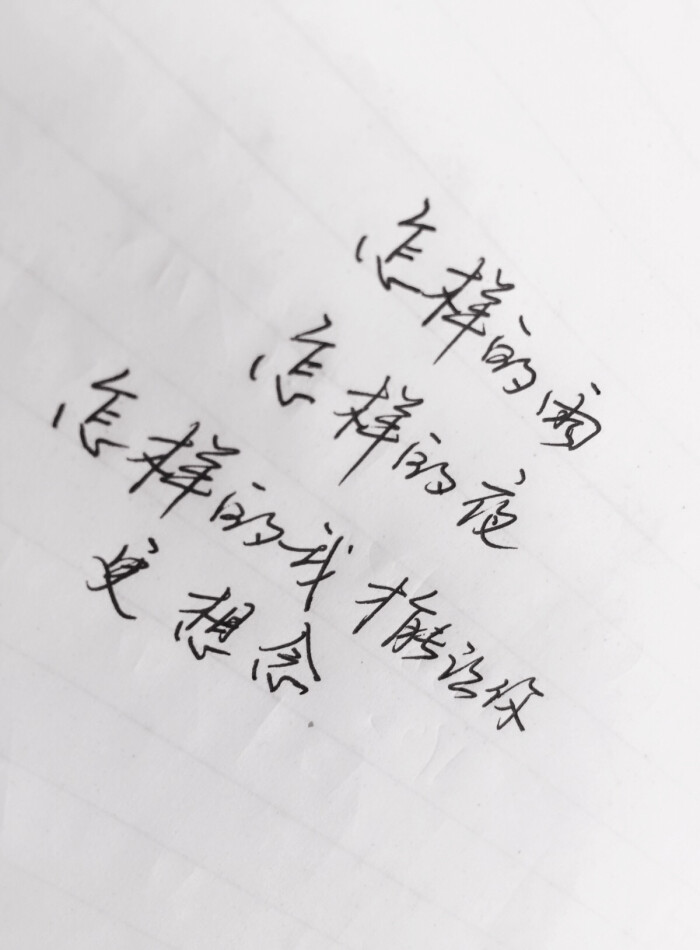 怎样的雨
怎样的夜
怎样的我 才能让你
更想念